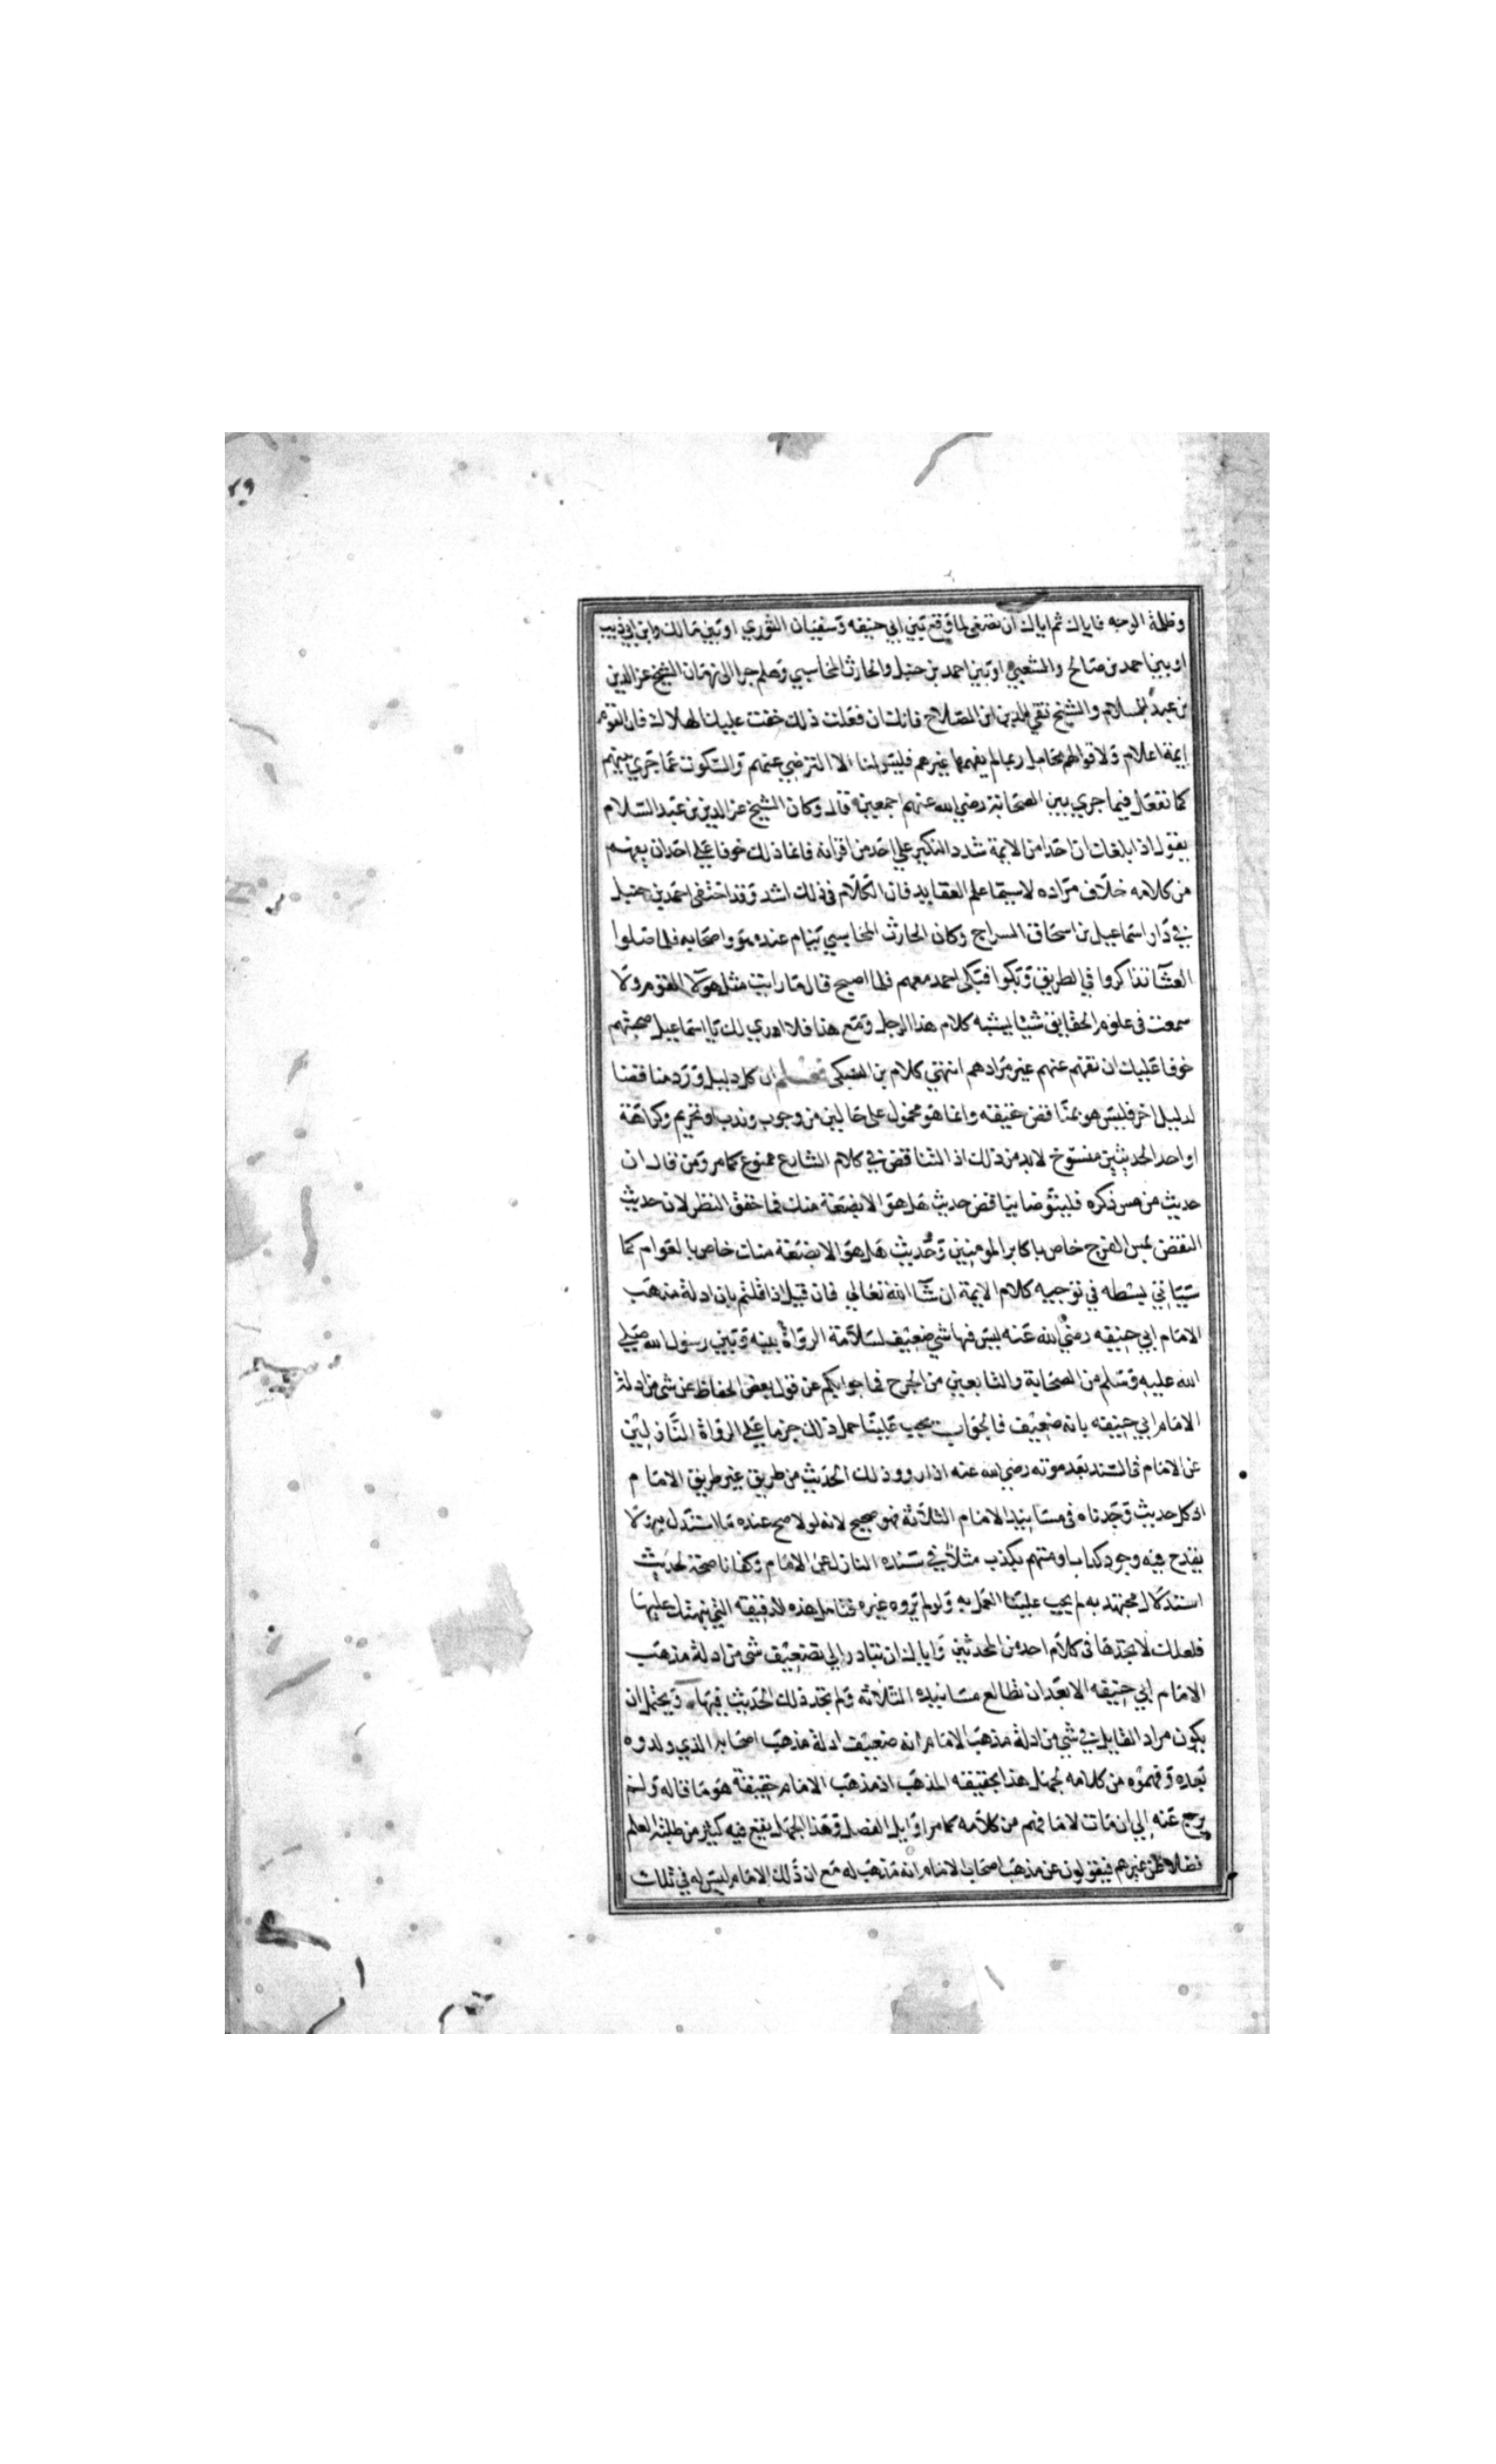 ٢٩
وظلمة الوجه فاياك ثم اياك ان تصغي لما وقع بين ابي حنيفه وسفيان الثوري او بين مالك وابن ابي ذيب
او بين احمد بن صالح والشعبي او بين احمد بن حنبل والحارث المحاسبي وهلم جرا الى زمان الشيخ عز الدين
بن عبد السلام والشيخ تقي الدين ابن الصلاح فانك ان فعلت ذلك خفت عليك الهلاك فان القوم
ايمة اعلام ولاقوالهم محامل ربما لم يفهمها غيرهم فليس لنا الا الترضي عنهم والسكوت عما جري بينهم
كما نفعل فيما جري بين الصحابة رضي الله عنهم اجمعين قال وكان الشيخ عز الدين بن عبد السلام
يقول اذا بلغك ان احدا من الايمة شدد النكير علي احد من اقرانه فانما ذلك خوفا علي احد ان يفهم
من كلامه خلاف مراده لا سيما علم العقايد فان الكلام في ذلك اشد وقد اختفى احمد بن حنبل
في دار اسماعيل بن اسحاق السراج وكان الحارث المحاسبي ينام عنده هو واصحابه فلما صلوا
العشا تذاكروا في الطريق وبكوا فبكى احمد معهم فلما اصبح قال ما رايت مثل هولا القوم ولا
سمعت في علوم الحقايق شيئا يشبه كلام هذا الرجل ومع هذا فلا اري لك يا اسماعيل صحبتهم
خوفا عليك ان تفهم عنهم غير مرادهم انتهي كلام بن السبكى ان كل دليل ورد مناقضا
لدليل اخر فليس هو بمناقض حقيقه وانما هو محمول على حالين من وجوب وندب او تحريم وكراهة
او احد الحديثين منسوخ لا بد من ذلك اذ التناقض في كلام الشارع ممنوع كما مر ومن قال ان
حديث من مس ذكره فليتوضا يناقض حديث هل هو الا بضعة منك فما حقق النظر لان حديث
النقض بمس الفرج خاص باكابر المومنين وحديث هل هو الا بضعة منك خاص بالعوام كما
سياتي بسطه في توجيه كلام الايمة ان شا الله تعالي فان قيل اذا قلتم بان ادلة مذهب
الامام ابي حنيفه رضي الله عنه ليس فيها شي ضعيف لسلامة الرواة بينه وبين رسول الله صلي
الله عليه وسلم من الصحابة والتابعين من الجرح فما جوابكم عن قول بعض الحفاظ عن شى من ادلة
الامام ابي حنيفه بانه ضعيف فالجواب يجب علينا حمل ذلك جزما علي الرواة النازلين
عن الامام في السند بعد موته رضي الله عنه اذا رووا ذلك الحديث من طريق غير طريق الامام
اذ كل حديث وجدناه في مسانيد الامام الثلاثة فهو صحيح لانه لولا صح عنده ما استدل به ولا
يقدح فيه وجود كذاب او متهم بكذب مثلا في سنده النازل عن الامام وكفانا صحة لحديث
استدلال مجتهد به ثم يجب علينا العمل به ولو لم يروه غيره فتامل هذه الدقيقه التي نبهتك عليها
فلعلك لا تجدها في كلام احد من المحدثين واياك ان تبادر الي تضعيف شى من ادلة مذهب
الامام ابي حنيفه الا بعد ان تطالع مسانيده الثلاثه ولم تجد ذلك الحديث فيها ويحتمل ان
يكون مراد القايل في شي من ادلة مذهب الامام انه ضعيف ادلة مذهب اصحابه الذي ولدوه
بعده وفهموه من كلامه لجهل هذا بحقيقه المذهب اذ مذهب الامام حقيقة هو ما قاله ولم
يرجع عنه الي ان مات لا ما فهم من كلامه كما مر اوايل الفصل وهذا الجهل يقع فيه كثير من طلبة العلم
فضلا عن غيرهم فيقولون عن مذهب اصحاب الامام انه مذهب له مع ان ذلك الامام ليس له في تلك